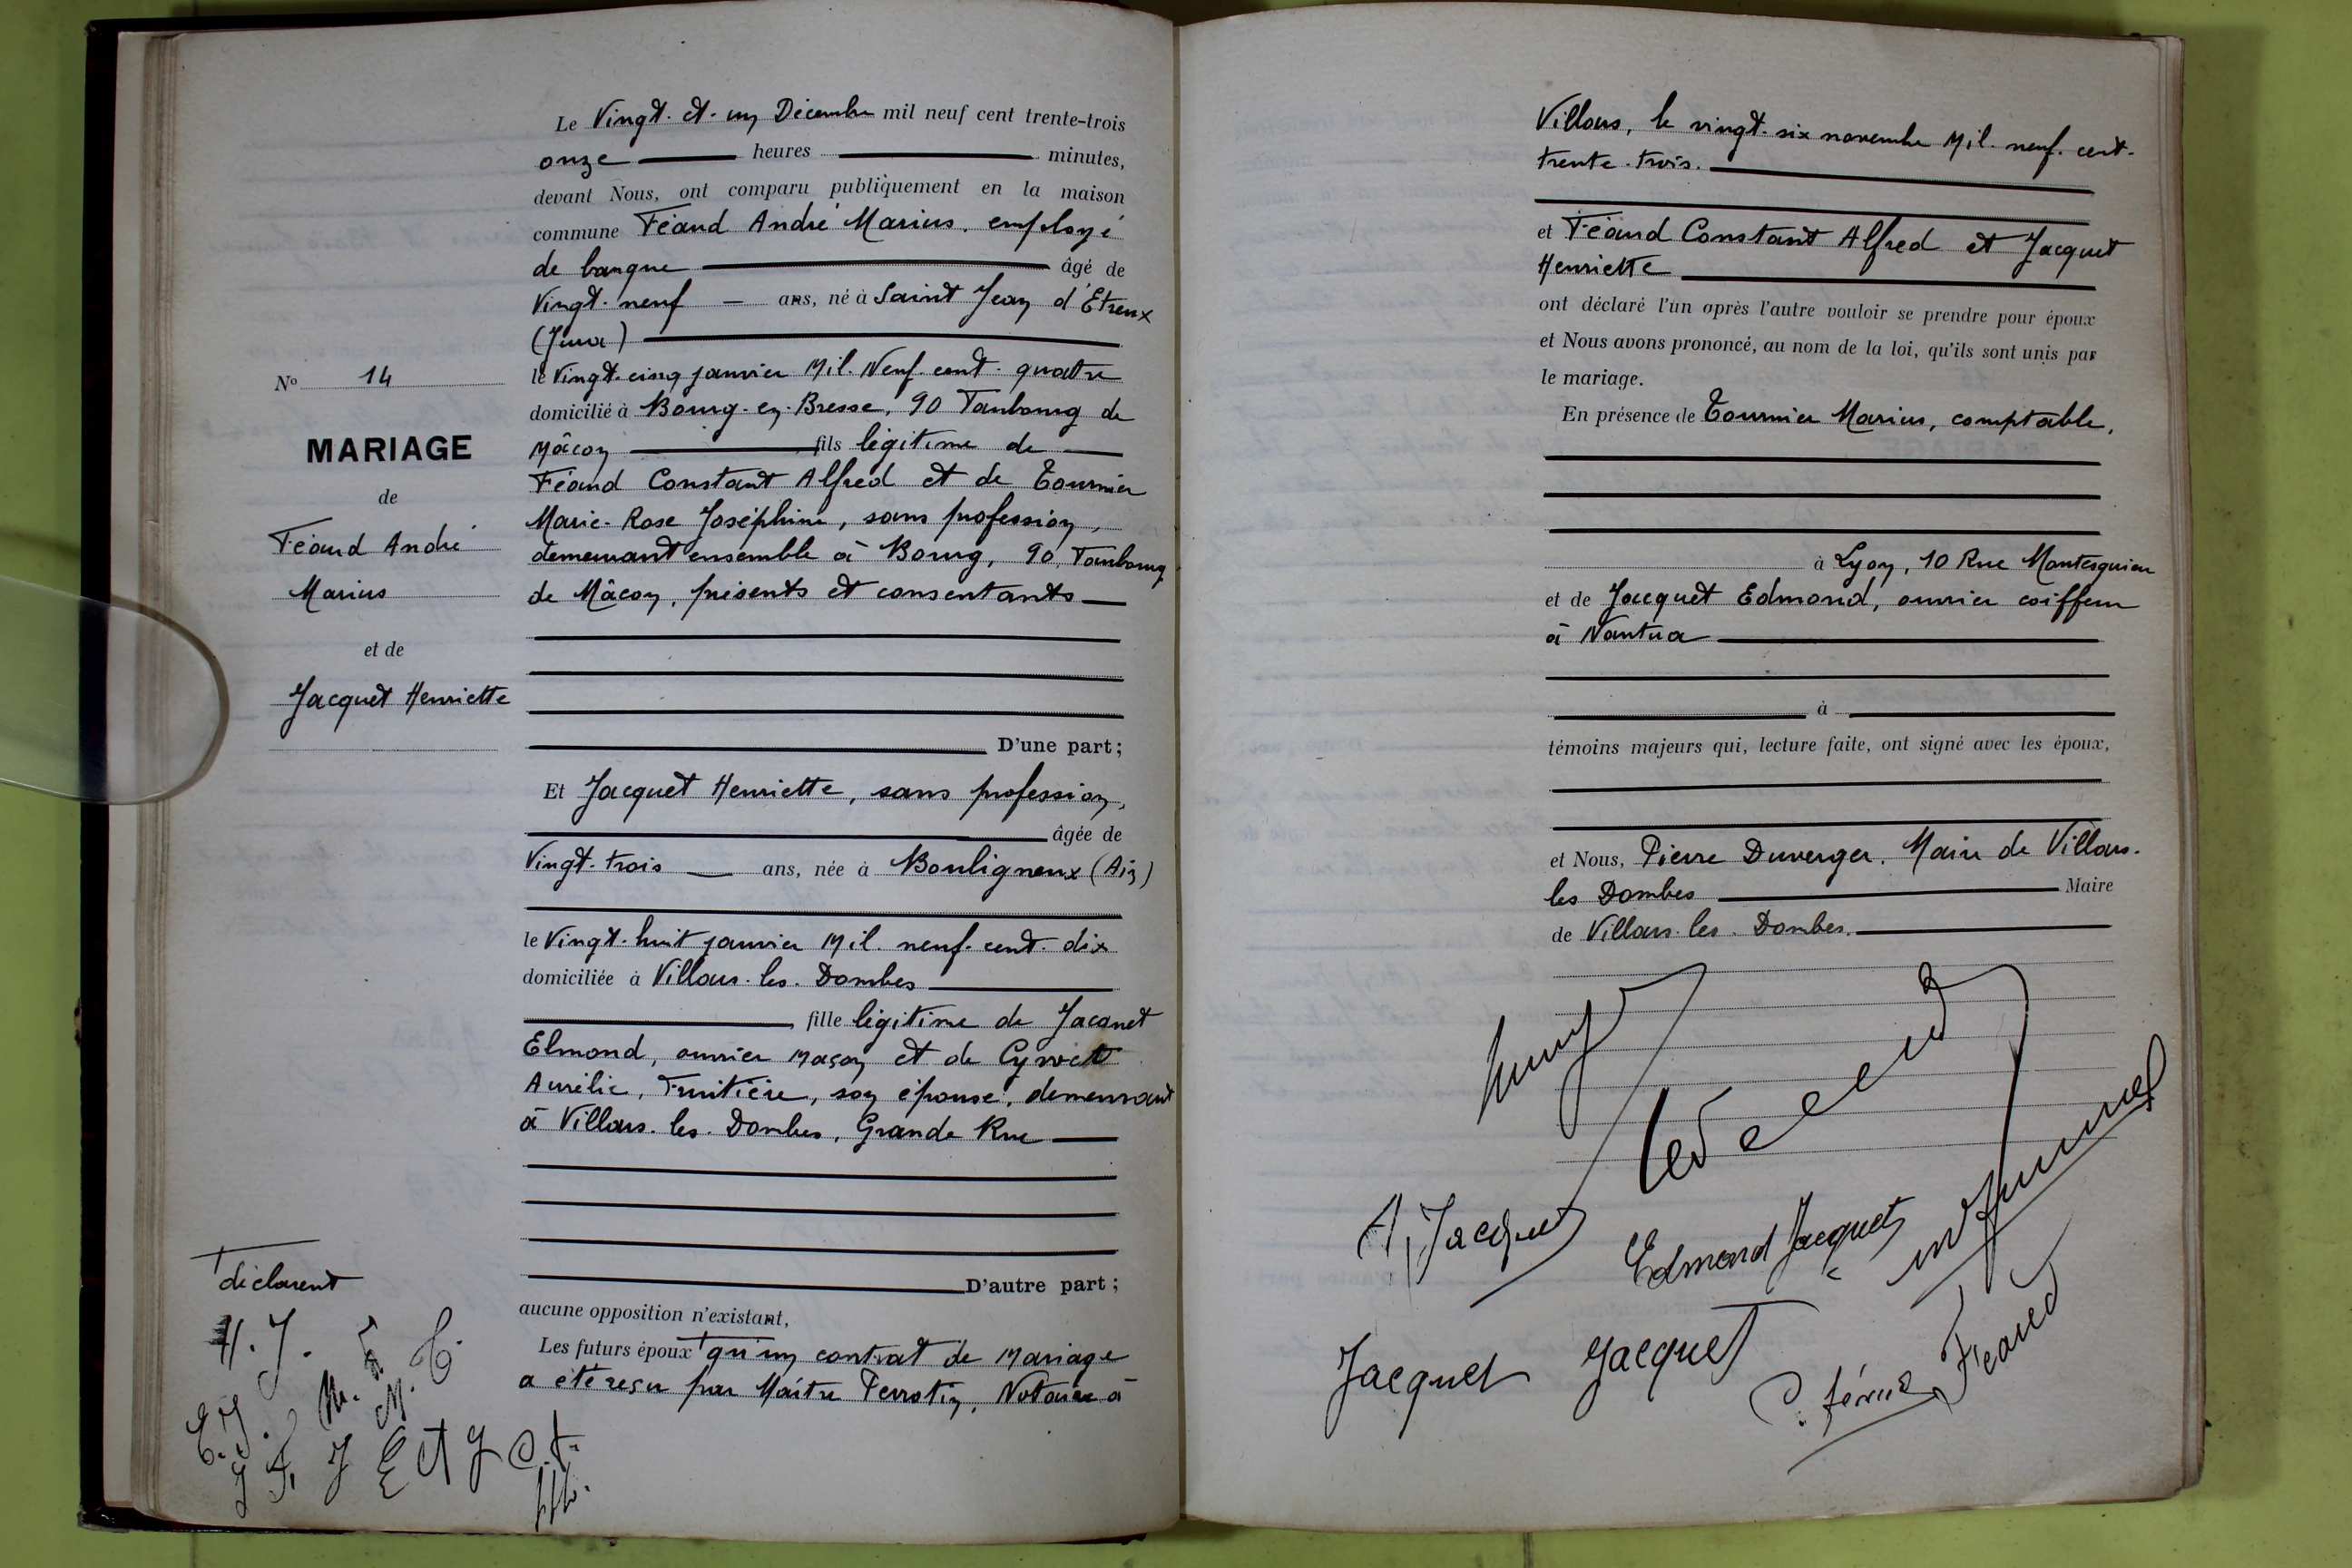 Le Vingt. et. un Décembre mil neuf cent trente-trois
onze heures minutes,
devant Nous, ont comparu publiquement en la maison
commune Féaud André Marius. employé
de banque âgé de
Vingt-neuf ans, né à Saint Jean d'Etreux
(Jura)
le Vingt-cinq janvier Mil. Neuf. cent. quatre
domicilié à Bourg. en. Bresse, 90 Faubourg de
Mâcon fils légitime de
Féaud Constant Alfred et de Tournier
Marie-Rose Joséphine, sans profession,
demeurant ensemble à Bourg, 90, Faubourg
de Mâcon, présents et consentants
D'une part;
Et Jacquet Henriette, sans profession,
âgée de
Vingt-trois ans, née à Bouligneux (Ain)
le Vingt-huit janvier Mil. neuf. cent. dix
domiciliée à Villars. les. Dombes
fille légitime de Jacquet
Elmond, ouvrier maçon et de Cyvoct
Aurélie, Fruitière, son épouse, demeurant
à Villars. les. Dombes, Grande Rue
D'autre part;
aucune opposition n'existant,
Les futurs époux qu'un contrat de mariage
a été reçu par Maître Perrotin, Notaire à
No 14
MARIAGE
de
Féaud André
Marius
et de
Jacquet Henriette
déclarent
H. J.
E. J.
Villars, le vingt-six novembre Mil. neuf. cent.
trente-trois.
et Féaud Constant Alfred et Jacquet
Henriette
ont déclaré l'un après l'autre vouloir se prendre pour époux
et Nous avons prononcé, au nom de la loi, qu'ils sont unis par
le mariage.
En présence de Tournier Marius, comptable,
à Lyon, 10 Rue Montesquieu
et de Jacquet Edmond, ouvrier coiffeur
à Nantua
à
témoins majeurs qui, lecture faite, ont signé avec les époux,
et Nous, Pierre Duverger. Maire de Villars.
les Dombes Maire
de Villars. les. Dombes.
Jacquet
Edmond Jacquet
Jacquet Jacquet
Féaud